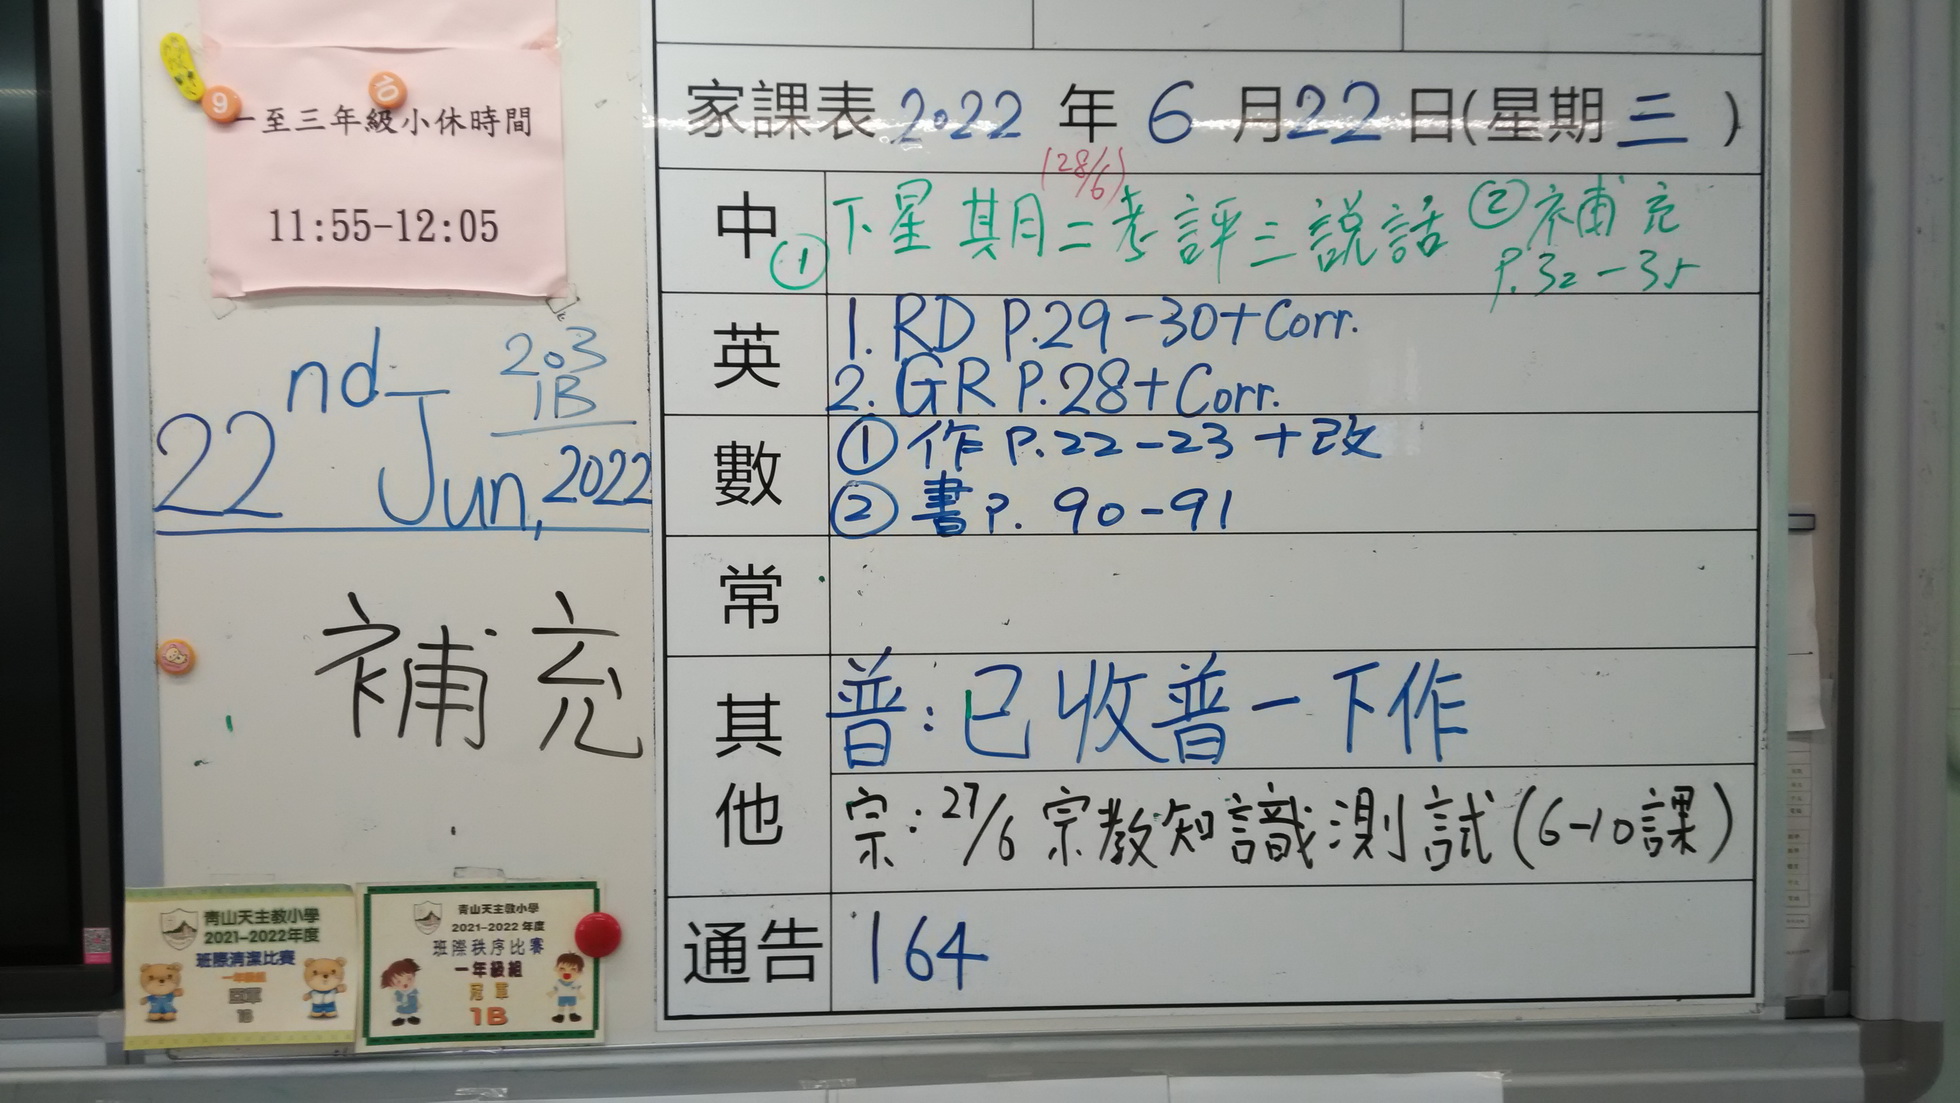 10
9
一至三年級小休時間
11:55-12:05
家課表 2022 年 6 月 22 日(星期 三 )
(28/6)
中 ① 下星期二考評三說話 ② 補充
P.32-35
英 1. RD P.29-30+Corr.
2. GR P.28+Corr.
數 ① 作 P.22-23 +改
② 書 P. 90-91
常
其他 普:已收普一下作
宗:27/6 宗教知識測試(6-10課)
通告 164
203
1B
22nd Jun, 2022
補充
青山天主教小學
2021-2022年度
班際清潔比賽
一年級組
冠軍
1B
青山天主教小學
2021-2022 年度
班際秩序比賽
一年級組
冠軍
1B